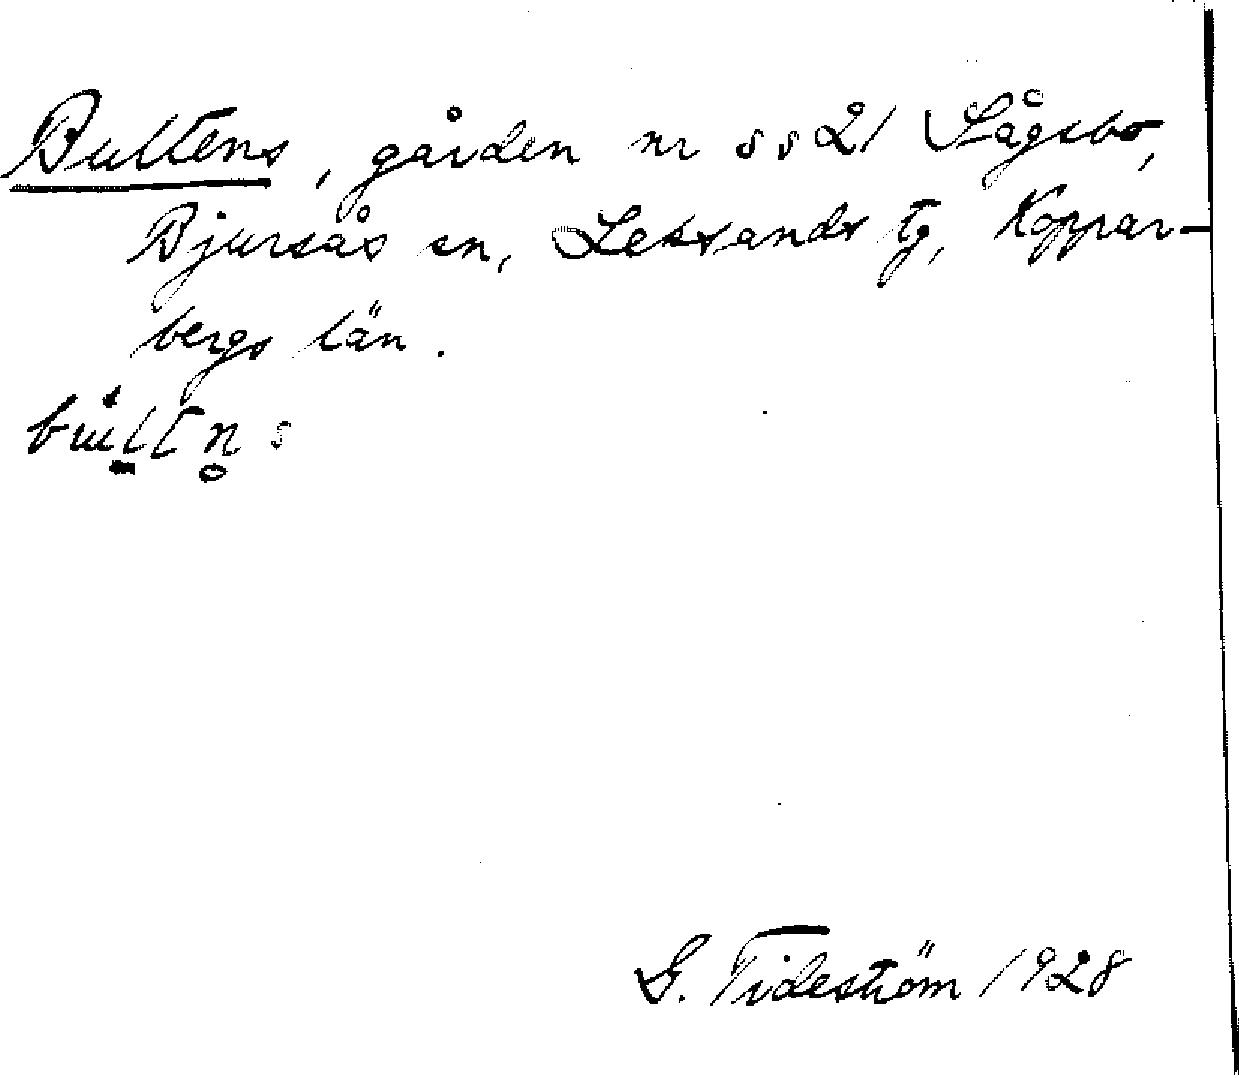 Bultens, gården nr 8821 Sågsbo,
Bjursås sn, Leksands tg, Koppar-
bergs län.
bultn̥s
G. Tideström 1928